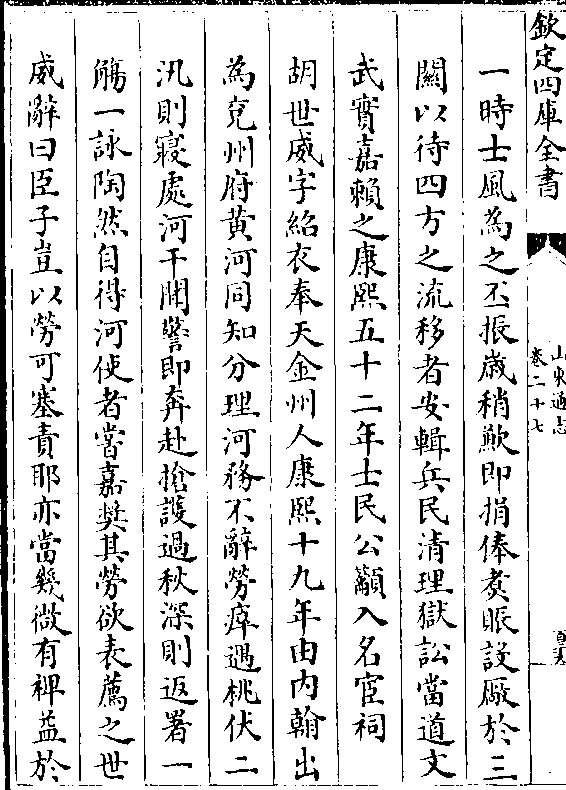 欽定四庫全書
山東通志
卷二十七
一時士風為之丕振歲稍歉即捐俸煑賑設厰於三
關以待四方之流移者安輯兵民清理獄訟當道文
武實嘉賴之康熙五十二年士民公籲入名宦祠
胡世威字紹衣奉天金州人康熙十九年由内翰出
為兖州府黄河同知分理河務不辭勞瘁遇桃伏二
汛則寝處河干聞警即奔赴搶護過秋深則返署一
觴一詠陶然自得河使者嘗嘉奬其勞欲表薦之世
威辭曰臣子豈以勞可塞責耶亦當幾微有裨益於